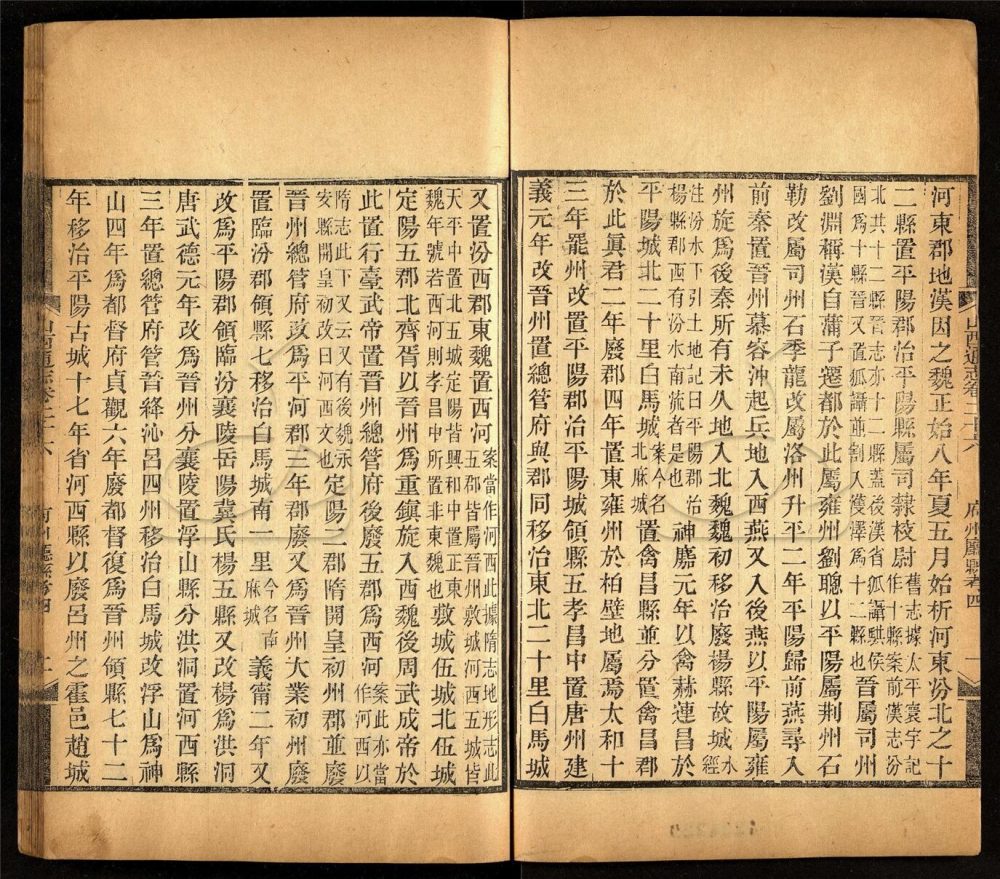 河東郡地漢因之魏正始八年夏五月始析河東汾北之十
二縣置平陽郡治平陽縣屬司隸校尉舊志據太平寰宇記作十縣案前漢志汾
北共十二縣晉志亦十二縣蓋後漢省狐讘騏侯國爲十縣晉又置狐讘並割入濩澤爲十二縣也晉屬司州
劉淵稱漢自蒲子遷都於此屬雍州劉聰以平陽屬荆州石
勒改屬司州石季龍改屬洛州升平二年平陽歸前燕尋入
前秦置晉州慕容沖起兵地入西燕又入後燕以平陽屬雍
州旋爲後秦所有未久地入北魏魏初移治廢楊縣故城水經
注汾水下引土地記曰平陽郡治楊縣郡西有汾水南流者是也神䴥元年以禽赫連昌於
平陽城北二十里白馬城案今名北麻城置禽昌縣並分置禽昌郡
於此眞君二年廢四年置東雍州於柏壁地屬焉太和十
三年罷州改置平陽郡治平陽城領縣五孝昌中置唐州建
義元年改晉州置總管府與郡同移治東北二十里白馬城
山西通志卷二十六 府州廳縣考四 一
又置汾西郡東魏置西河案當作河西此據隋志地形志此五郡皆屬晉州敷城河西五城皆
天平中置北五城定陽皆興和中置正東魏年號若西河則孝昌中所置非東魏也敷城伍城北伍城
定陽五郡北齊胥以晉州爲重鎮旋入西魏後周武成帝於
此置行臺武帝置晉州總管府後廢五郡爲西河案此亦當作河西以
隋志此下又云又有後魏永安縣開皇初改曰河西文也定陽二郡隋開皇初州郡並廢
晉州總管府政爲平河郡三年郡廢又爲晉州大業初州廢
置臨汾郡領縣七移治白馬城南一里今名南麻城義甯二年又
改爲平陽郡領臨汾襄陵岳陽冀氏楊五縣又改楊爲洪洞
唐武德元年改爲晉州分襄陵置浮山縣分洪洞置河西縣
三年置總管府管晉絳沁呂四州移治白馬城改浮山爲神
山四年爲都督府貞觀六年廢都督復爲晉州領縣七十二
年移治平陽古城十七年省河西縣以廢呂州之霍邑趙城